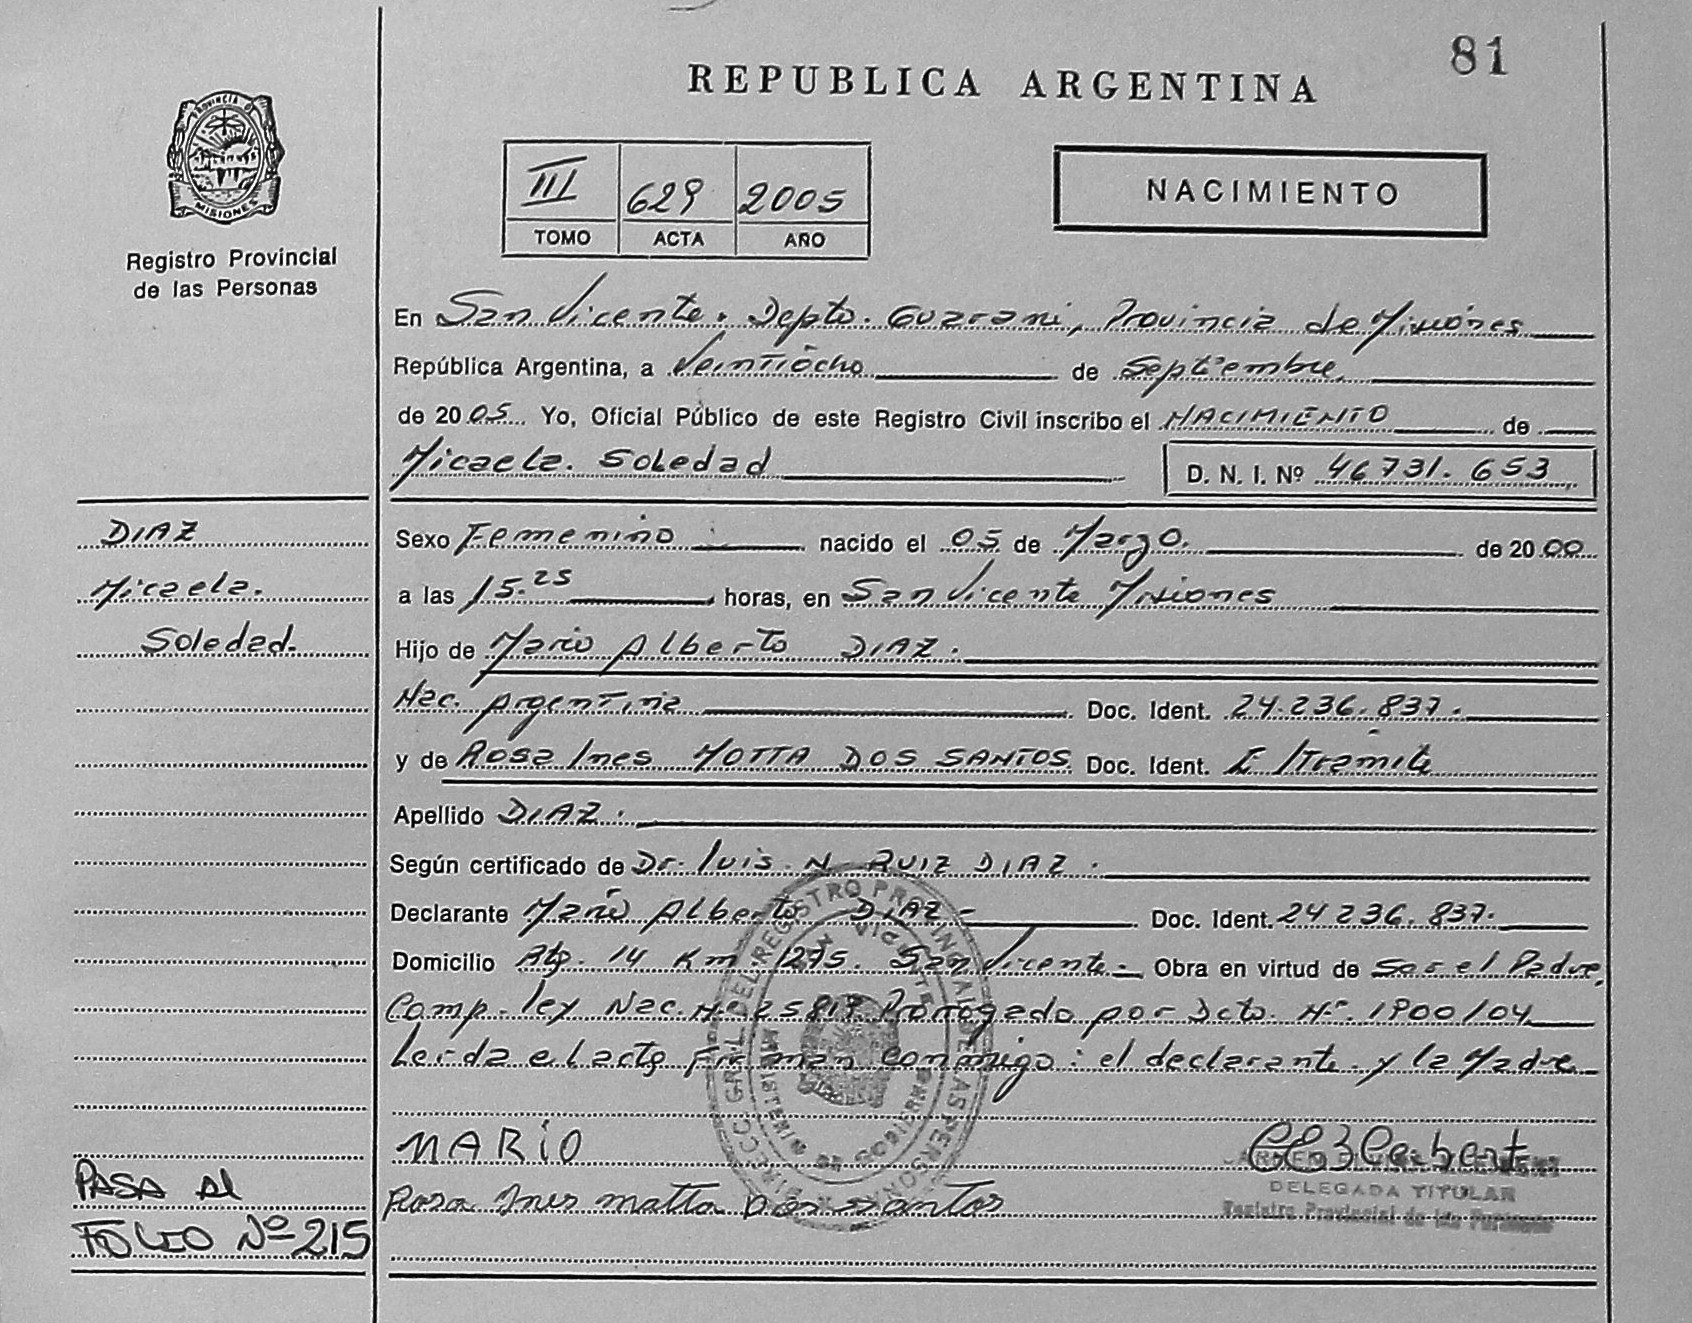 81
REPUBLICA ARGENTINA
PROVINCIA DE
MISIONES
Registro Provincial
de las Personas
III 629 2005
TOMO ACTA AÑO
NACIMIENTO
En San Vicente. Depto. Guarani, Provincia de Misiones
República Argentina, a Veintiocho de Septiembre
de 2005 Yo, Oficial Público de este Registro Civil inscribo el NACIMIENTO de
Micaela. Soledad
D. N. I. Nº 46731.653
DIAZ
Micaela.
Soledad.
Sexo Femenino nacido el 05 de Marzo. de 2000
a las 15.25 horas, en San Vicente Misiones
Hijo de Mario Alberto DIAZ.
Nac. Argentina Doc. Ident. 24.236.837.
y de Rosa Ines MOTTA DOS SANTOS Doc. Ident. E/Tramite
Apellido DIAZ.
Según certificado de Dr. Luis N. RUIZ DIAZ.
Declarante Mario Alberto DIAZ- Doc. Ident. 24236.837.
Domicilio Rta. 14 Km. 1275. San Vicente. Obra en virtud de Ser el Padre,
Comp. ley Nac. Nº 25817 Prorrogado por Dcto. Nº. 1900/04
Leida el acta Firman conmigo: el declarante y la Madre
MARiO
Rosa Ines motta Dos santos
DELEGADA TITULAR
Registro Provincial de las Personas
DIRECC GRAL DEL REGISTRO PROVINCIAL DE LAS PERSONAS
MINISTERIO DE GOBIERNO
VICENTE
PASA Al
FOLIO Nº 215